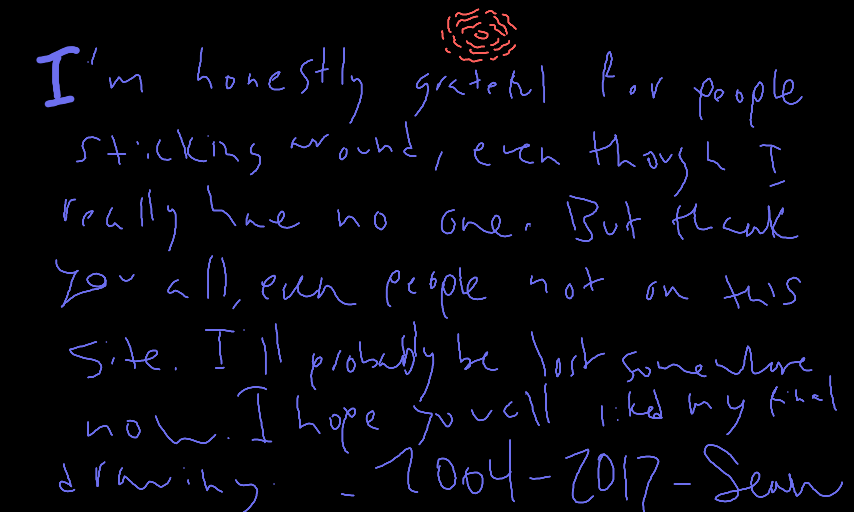 I'm honestly grateful for people
sticking around, even though I
really have no one. But thank
you all, even people not on this
site. I'll probably be lost somewhere
now. I hope you all liked my final
drawing. - 2004-2017 - Sean